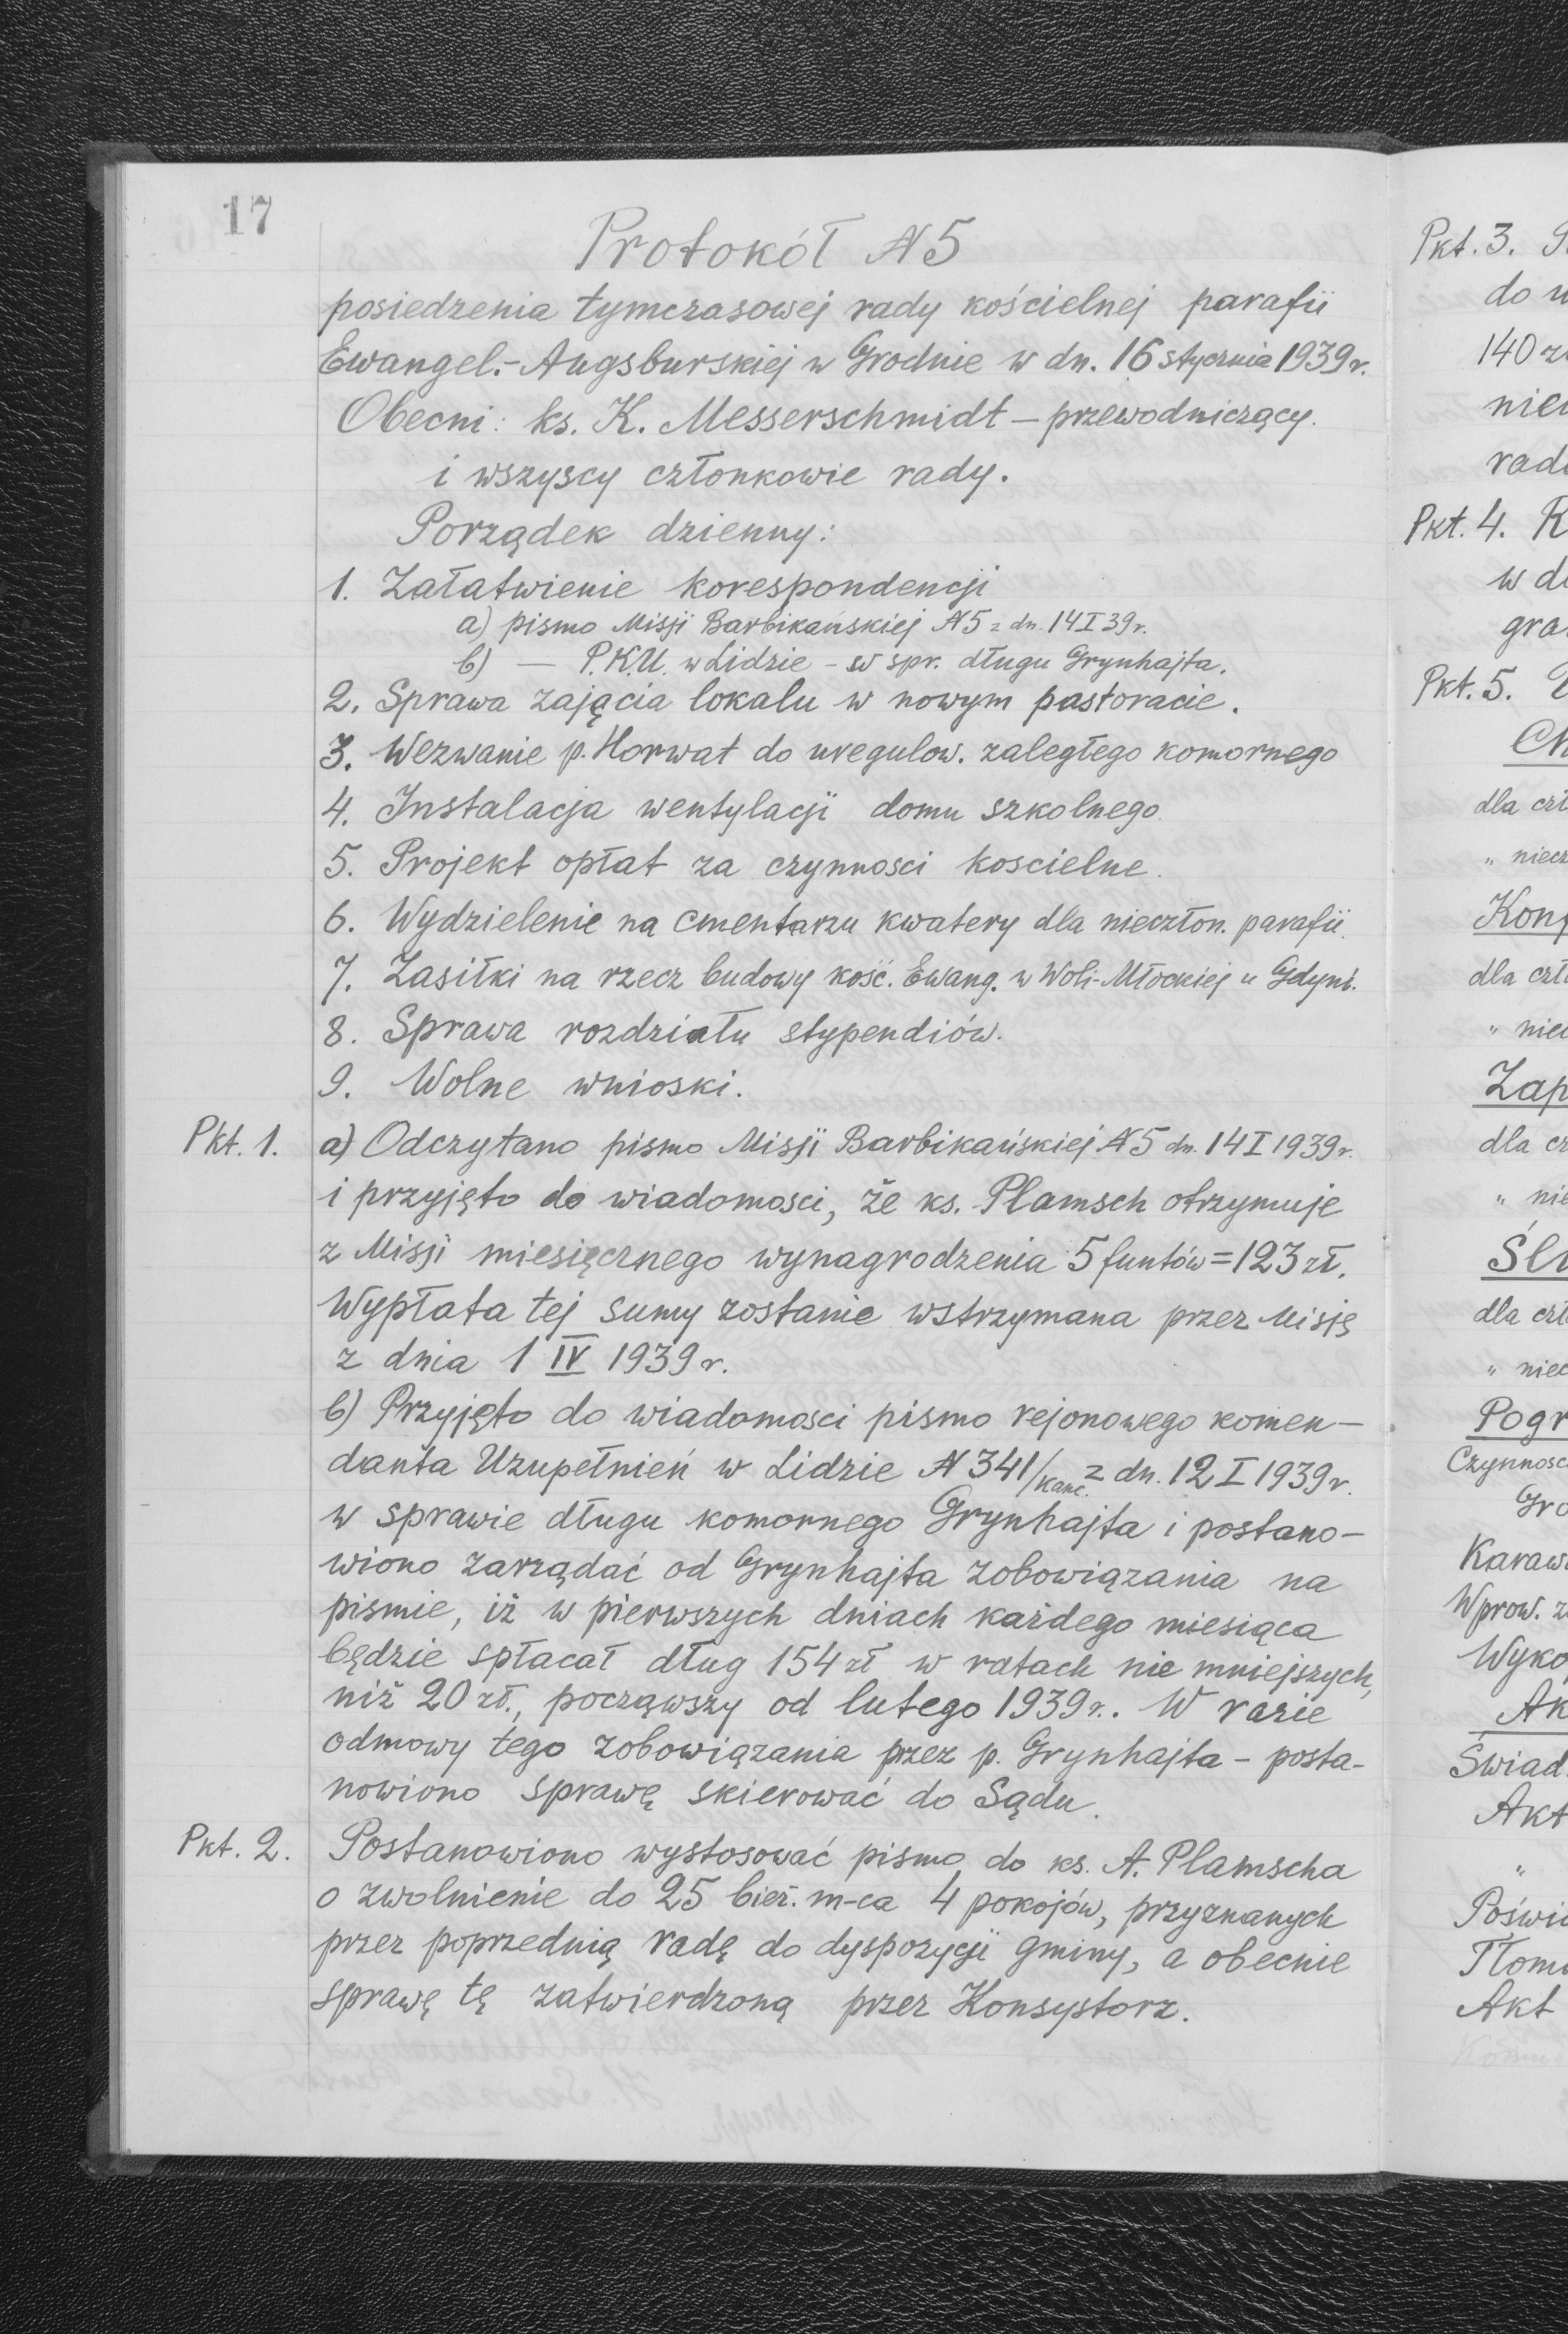 17
Protokół N5
posiedzenia tymczasowej rady kościelnej parafii
Ewangel.-Augsburskiej w Grodnie w dn. 16 stycznia 1939 r.
Obecni: ks. K. Messerschmidt – przewodniczący.
i wszyscy członkowie rady.
Porządek dzienny:
1. Załatwienie korespondencji
a) pismo Misji Barbikańskiej N5 z dn. 14 I 39 r.
b) — P.K.U. w Lidzie – w spr. długu Grynhajta.
2. Sprawa zajęcia lokalu w nowym pastoracie.
3. Wezwanie p. Horwat do uregulow. zaległego komornego
4. Instalacja wentylacji domu szkolnego
5. Projekt opłat za czynnosci koscielne.
6. Wydzielenie na cmentarzu kwatery dla nieczłon. parafii.
7. Zasiłki na rzecz budowy kość. Ewang. w Woli-Młockiej u Gdyni.
8. Sprawa rozdziału stypendiów.
9. Wolne wnioski.
Pkt. 1. a) Odczytano pismo Misji Barbikańskiej N5 dn. 14 I 1939 r.
i przyjęto do wiadomosci, że ks. Plamsch otrzymuje
z Misji miesięcznego wynagrodzenia 5 funtów = 123 zł.
Wypłata tej sumy zostanie wstrzymana przez Misję
z dnia 1 IV 1939 r.
b) Przyjęto do wiadomosci pismo rejonowego komen-
danta Uzupełnień w Lidzie N 341/Kanc. z dn. 12 I 1939 r.
w sprawie długu komornego Grynhajta i postano-
wiono zarządać od Grynhajta zobowiązania na
pismie, iż w pierwszych dniach każdego miesiąca
będzie spłacał dług 154 zł w ratach nie mniejszych,
niż 20 zł., począwszy od lutego 1939 r.. W razie
odmowy tego zobowiązania przez p. Grynhajta – posta-
nowiono sprawę skierować do Sądu.
Pkt. 2. Postanowiono wystosować pismo do ks. A. Plamscha
o zwolnienie do 25 bież. m-ca 4 pokojów, przyznanych
przez poprzednią radę do dyspozycji gminy, a obecnie
sprawę tę zatwierdzoną przez Konsystorz.
Pkt. 3.
do
140
Pkt. 4.
w
Pkt. 5.
dla
"
dla
"
dla
"
dla
"
Akt
"
Akt